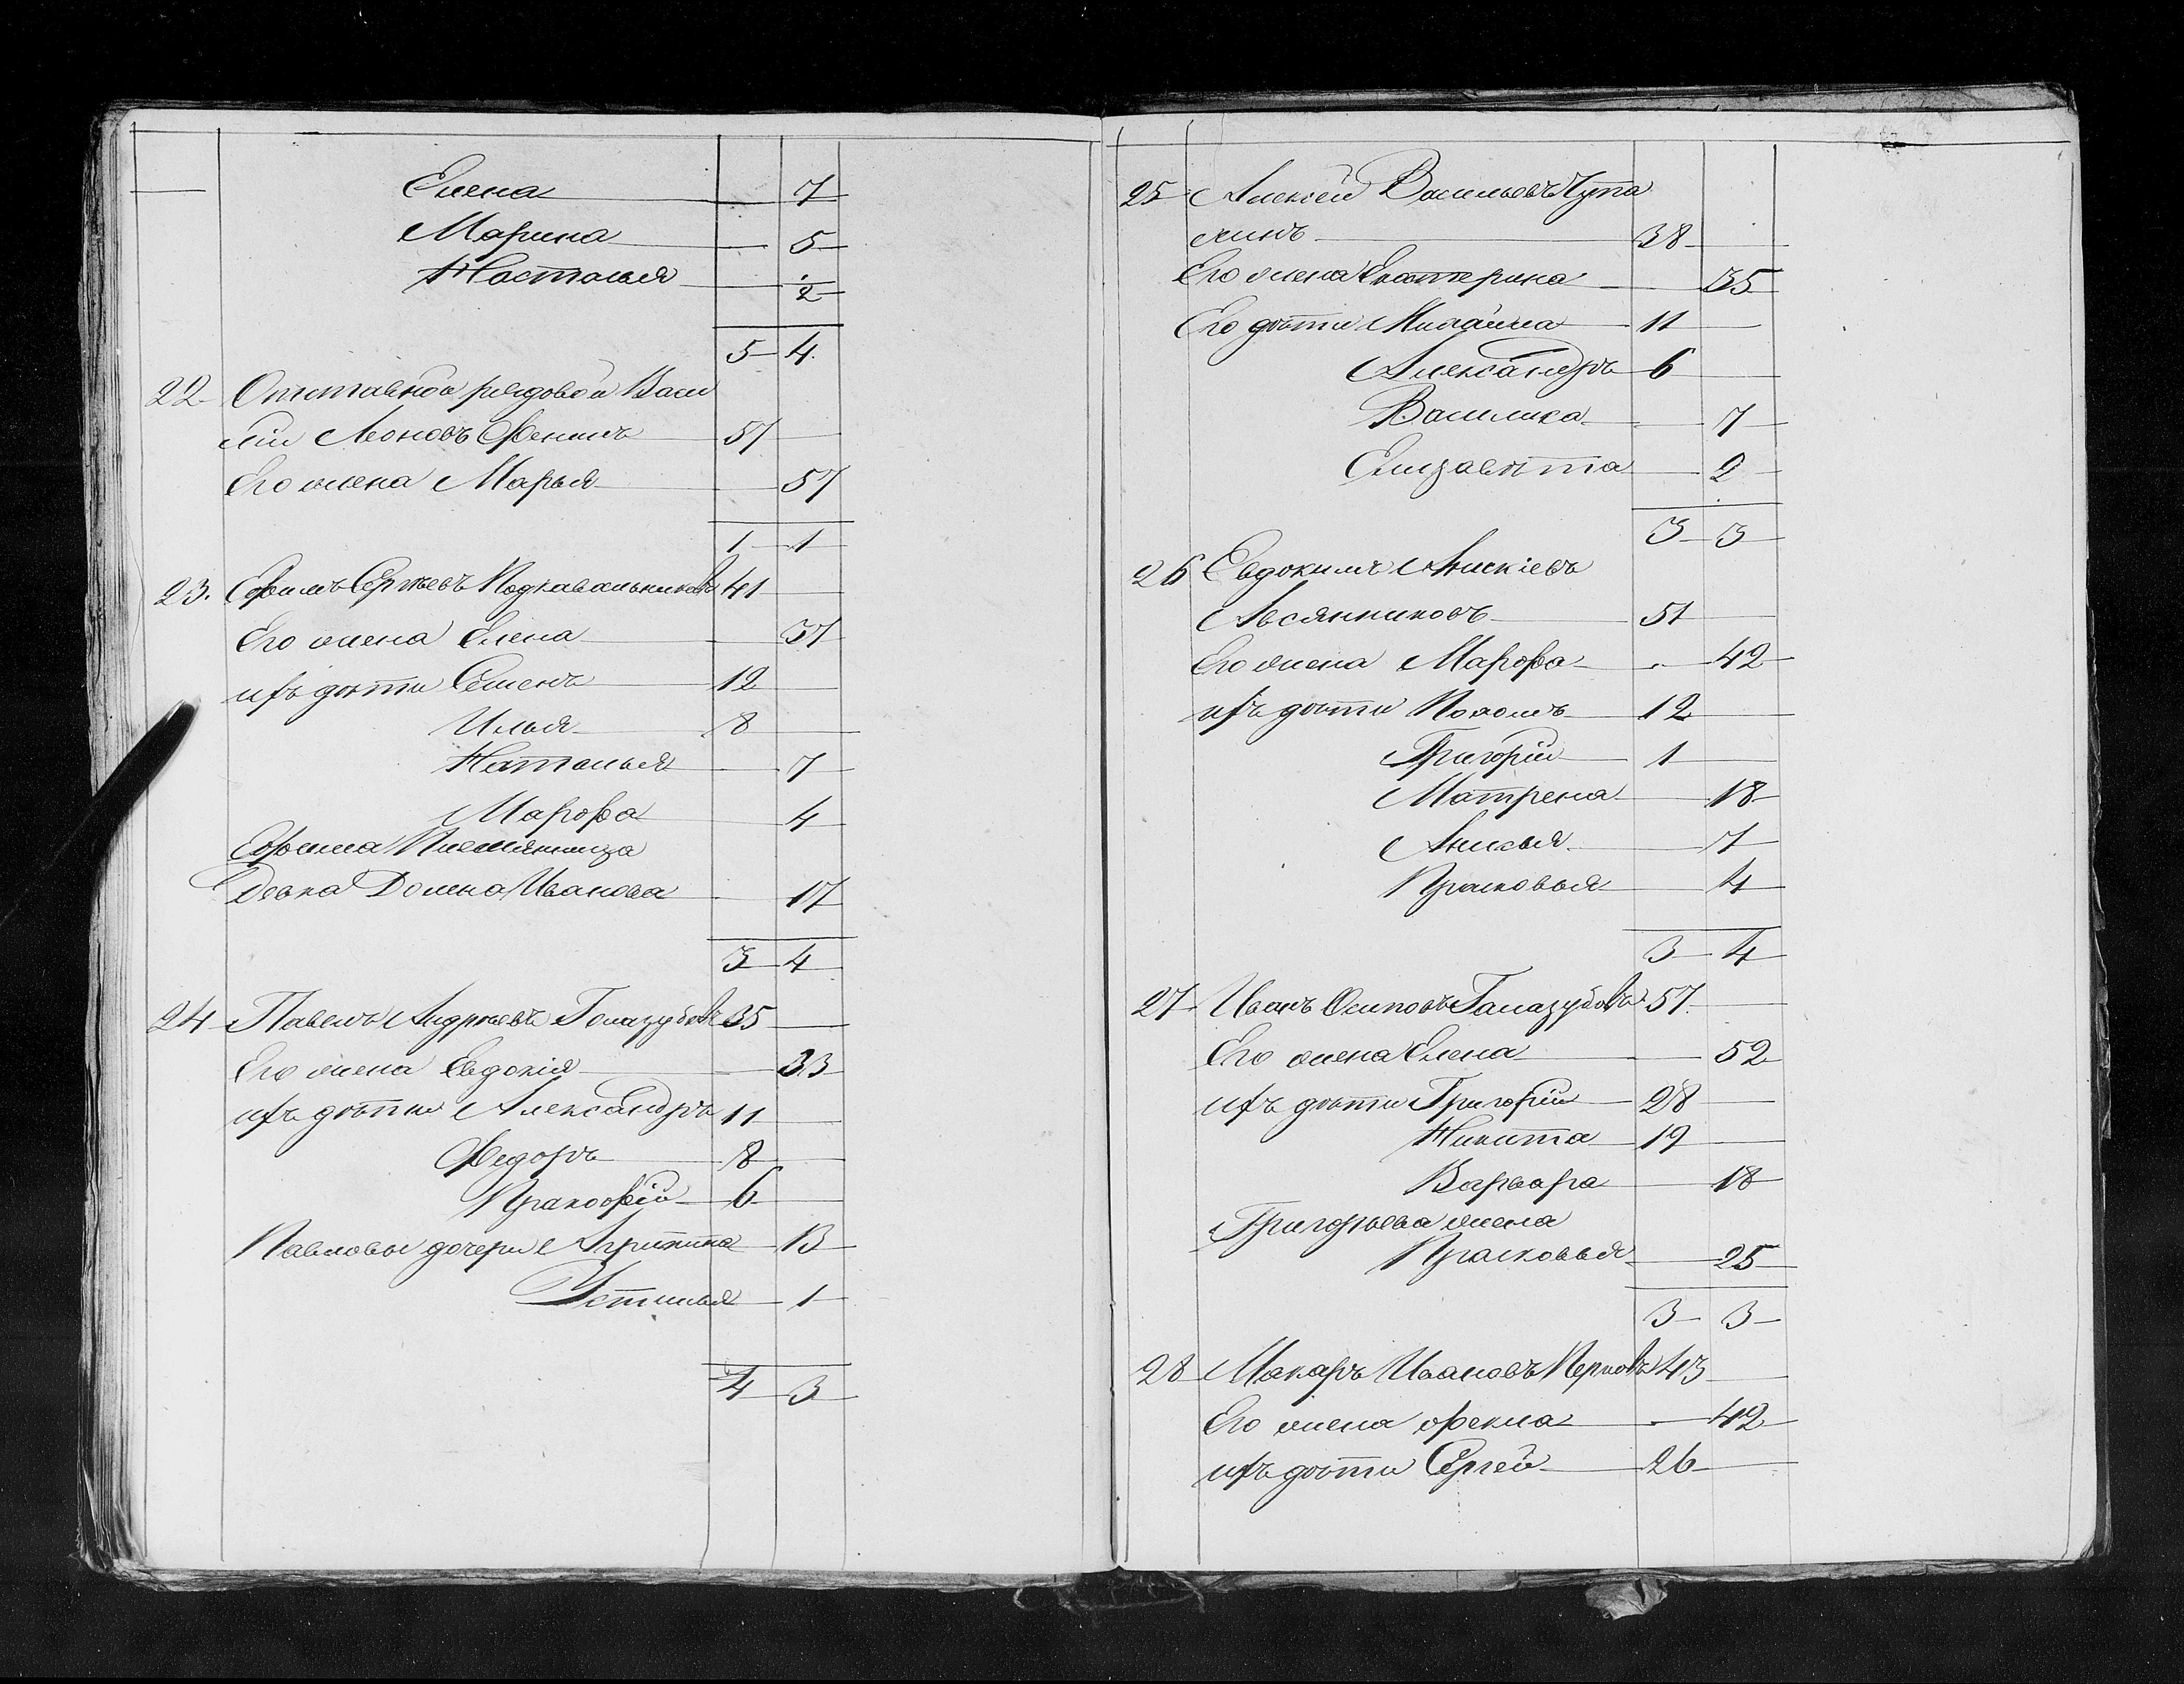 Елена 7
Марина 5
Настасья 1/2
5 4
22 Отставной рядовой Васи
лiй Леоновъ Фенинъ 57
Его жена Марья 57
1 1
23. Ефимъ Сергѣевъ 41
Его жена Елена 37
ихъ дѣти Семенъ 12
Илья 8
Наталья 7
Марфа 4
Ефима Племянница
Девка Домна Иванова 17
3 4
24 Павелъ Андреевъ Галазубовъ 35
Его жена Евдокiя 33
ихъ дѣти Александръ 11
Федоръ 8
Пракофiй 6
Павловы дочери Агрипина 13
Устинья 1
4 3
25 Алексей Васильевъ Чупа
хинъ 38
Его жена Екатерина 35
Его дѣти Михайла 11
Александръ 6
Василиса 7
Елизавѣта 2
3 3
26 Евдокимъ
Авсянниковъ 51
Его жена Марфа 42
ихъ дѣти Пахомъ 12
Григорiй 1
Матрена 18
Анисья 7
Прасковья 4
3 4
27 Иванъ Осиповъ Галазубовъ 57
Его жена Елена 52
ихъ дѣти Григорiй 28
Никита 19
Варвара 18
Григорьева жена
Прасковья 25
3 3
28 Макаръ Ивановъ 43
Его жена Фекла 42
ихъ дѣти Сергей 26